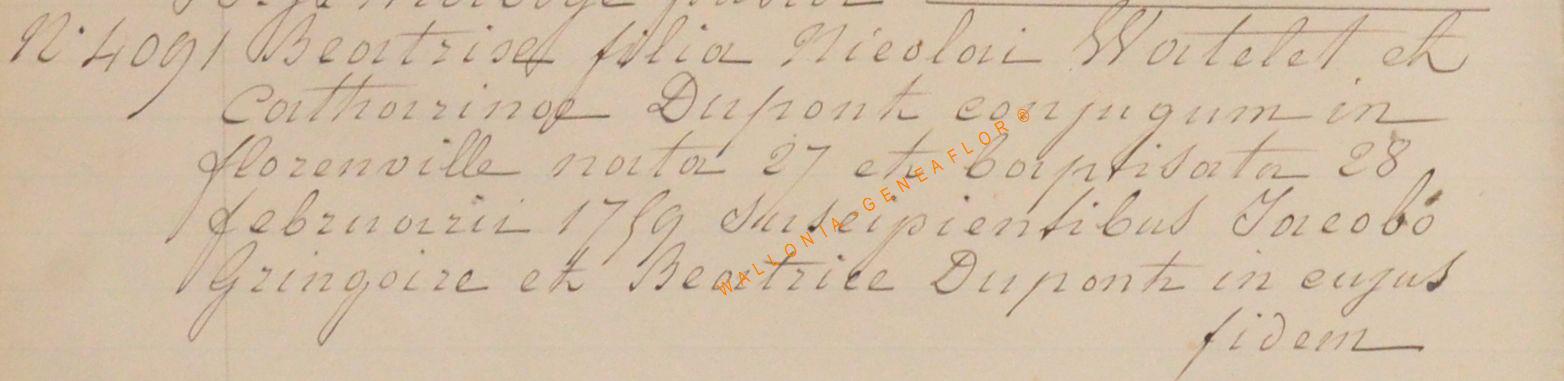 N° 4091 Beatrix filia Nicolai Watelet et
Catharinae Dupont conjugum in
florenville nata 27 et baptisata 28
februarii 1759 suscipientibus Jacobo
Gringoire et Beatrice Dupont in cujus
fidem
WALLONIA-GENEAFLOR®